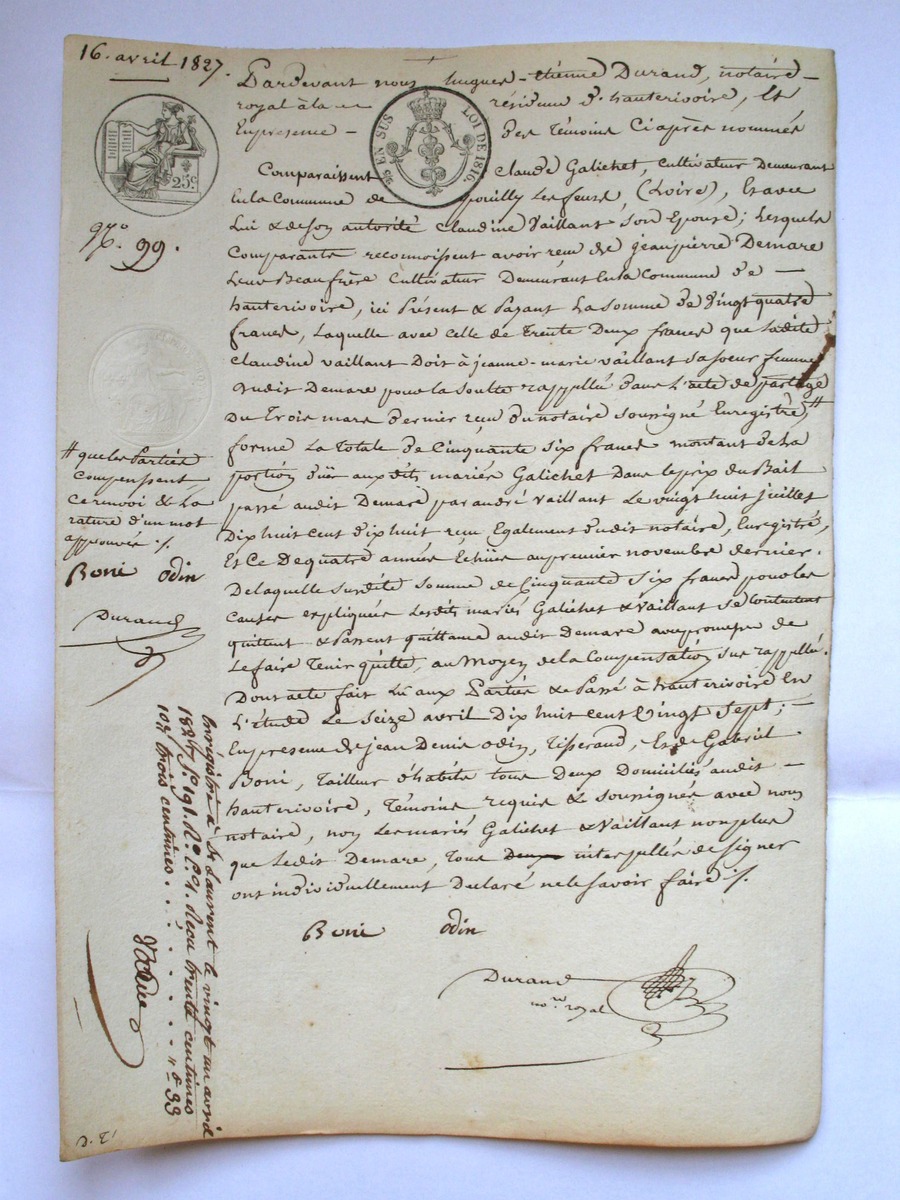 16. avril 1827.
Pardevant nous hugues-étienne Durand, notaire
royal à la résidence d'hauterivoire, Et
En presence des Témoins Ci après nommés
25 EN SUS LOI DE 1816.
25c
Comparaissent Claude Galichet, Cultivateur Demeurant
En la Commune de pouilly Les feurs, (Loire), Et avec
Lui & de son autorité Claudine Vaillant Son Epouse; Lesquels
N.o 99.
Comparants reconnoissent avoir reçu de jean pierre Demare
Leur Beaufrère Cultivateur Demeurant En la Commune de
hauterivoire, ici Présent & Payant La Somme de Vingt quatre
francs, Laquelle avec celle de Trente Deux francs que Ladite
Claudine vaillant Doit à jeanne-marie vaillant Sa soeur femme
dudit Demare pour la Soulte rappellée dans L'acte de partage
Du Trois mars dernier reçu du notaire Soussigné Enregistré, #
forme La Totale de Cinquante Six francs montant de la
portion düe aux dits mariés Galichet Dans le prix du Bail
passé audit Demare par andré Vaillant Le vingt huit juillet
Dix huit cent dix huit reçu Egalement dudit notaire, Enregistré,
Et Ce De quatre années Echües au premier novembre dernier.
# que les Parties
compensent,
ce renvoi & la
rature d'un mot
approuvés ./.
Boni odin
Durand
De laquelle Susdite Somme de Cinquante Six francs pour les
Causes expliquées Lesdits mariés Galichet & Vaillant Se Contentent
quittent & Passent quittance audit Demare avec promesse de
Le faire Tenir quitte, au Moyen de la Compensation Sus rappellée.
Dont acte fait Lu aux Parties & Passé à hauterivoire En
L'étude Le Seize avril Dix huit cent Vingt Sept;
En presence de jean Denis odin, Tisserand, Et de Gabriel
Boni, Tailleur d'habits tous Deux Domiciliés audit
hauterivoire, Témoins requis & Soussignés avec nous
notaire, non Les mariés Galichet & Vaillant non plus
que Ledit Demare, Tous Deux interpellés de Signer
ont individuellement Declaré ne le Savoir faire ./.
Boni odin
Durand
no.re royal
Enregistré à St Laurent le vingt un avril
1827 f.o 191. R.o C. 9. Reçu trente centimes
10.e trois centimes . . . . . . . 33